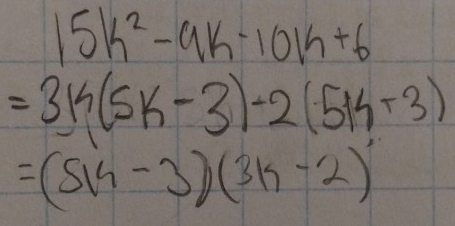 15k² - 9k - 10k + 6
= 3k(5k - 3) - 2(5k - 3)
= (5k - 3)(3k - 2)